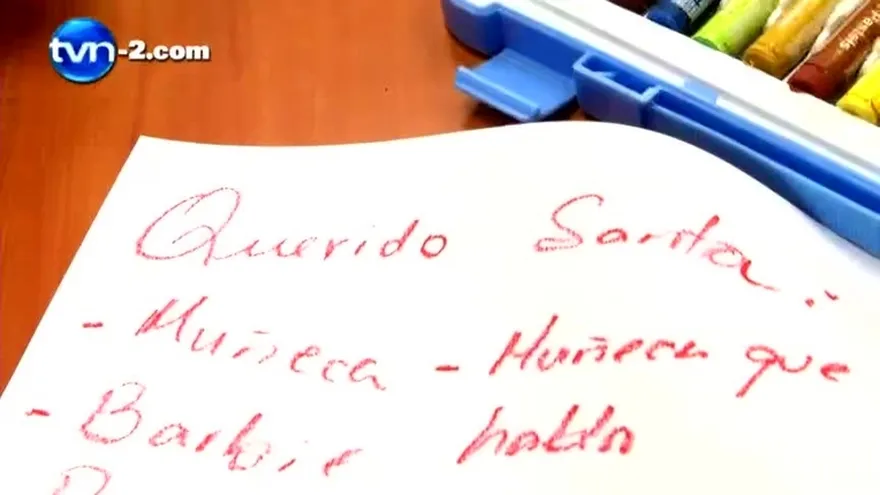 tvn-2.com
Querido Santa:
- Muñeca - Muñeca que
- Barbie habla